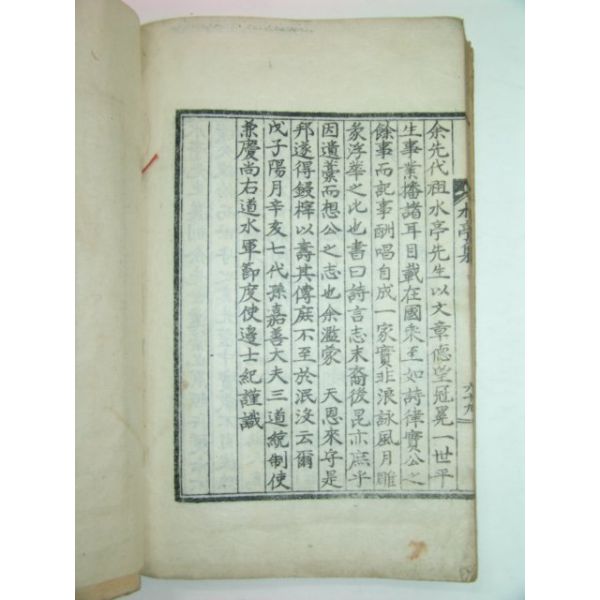 余先代祖水亭先生以文章德望冠冕一世平
生事業播諸耳目載在國乘至如詩律實公之
餘事而記事酬唱自成一家實非浪詠風月雕
篆浮華之比也書曰詩言志末裔後昆亦庶乎
因遺藁而想公之志也余濫蒙　天恩來守是
邦遂得鋟榟以壽其傳庶不至於泯沒云爾
戊子陽月辛亥七代孫嘉善大夫三道統制使
兼慶尚右道水軍節度使邊士紀謹識
水亭集
六十九